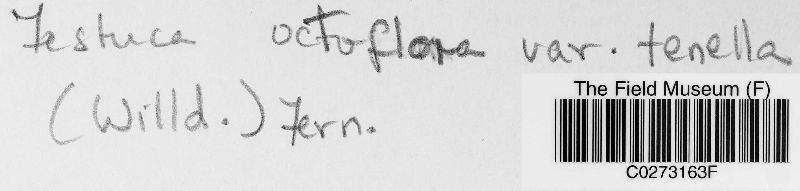 Festuca octoflora var. tenella
(Willd.) Fern.
The Field Museum (F)
C0273163F